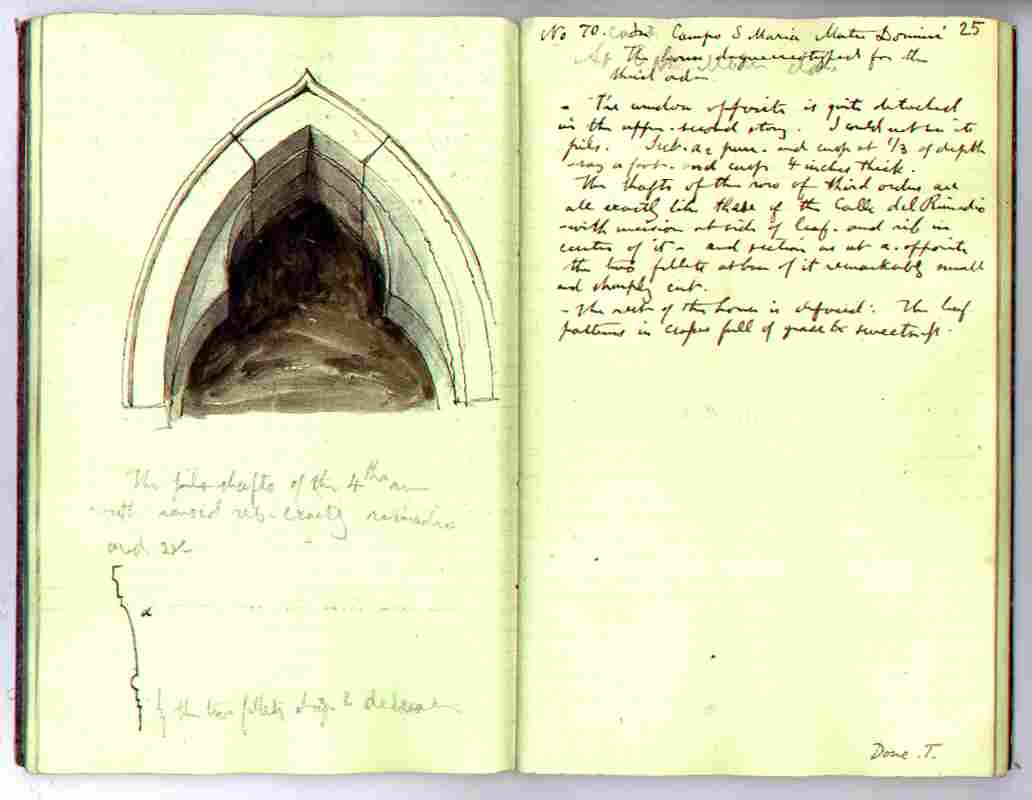 The pila shafts of the 4th
with raised rib - exactly
and
a
the two fillets at
No 70. Campo S Maria Mater Domini 25
The house daguerreotyped for the
third order
- The window opposite is quite detached
in the upper second story. I could not see its
pila. pure. and cusp at 1/3 of depth
say a foot. and cusp 4 inches thick.
The shafts of the row of third orders are
all exactly like those of the Calle del Rimedio
- with incision at side of leaf. and rib in
centre of it - and section as at a. opposite
the two fillets at base of it remarkably small
and sharply cut.
- The rest of the house is defaced: The leaf
patterns in full of grace & sweetness.
Done .T.